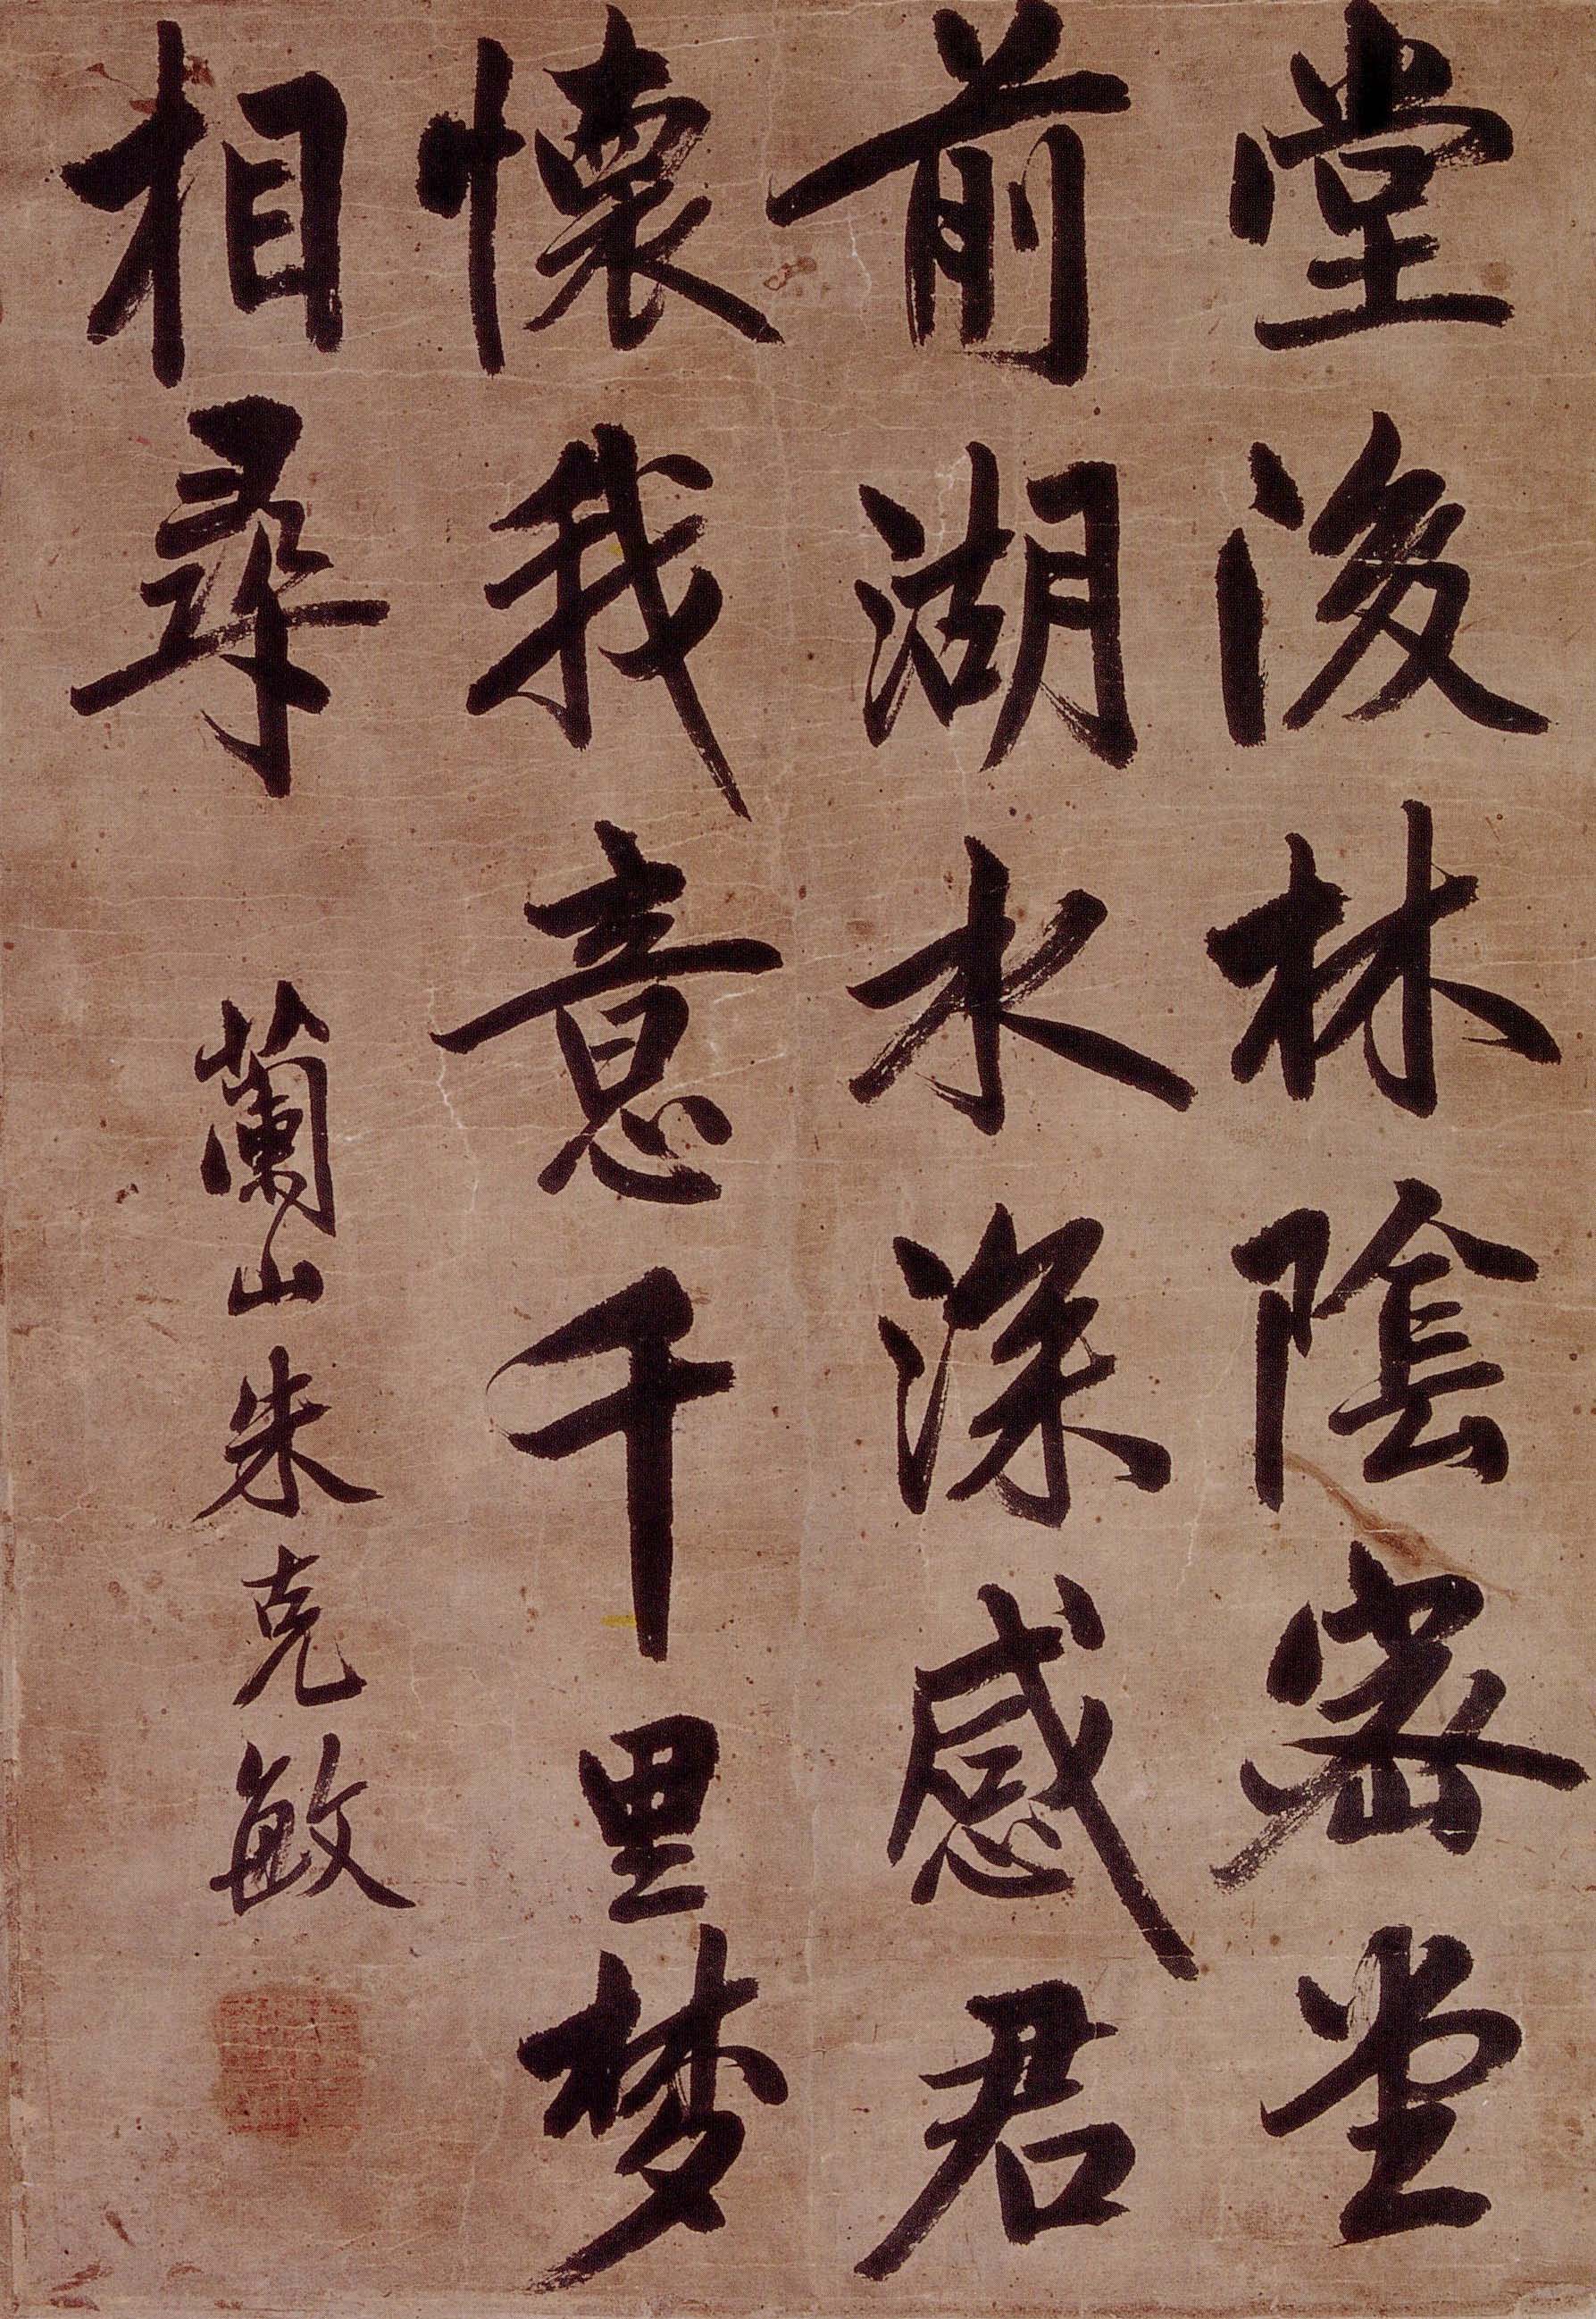 堂後林陰密堂
前湖水深感君
懷我意千里梦
相尋
蘭山朱克敏